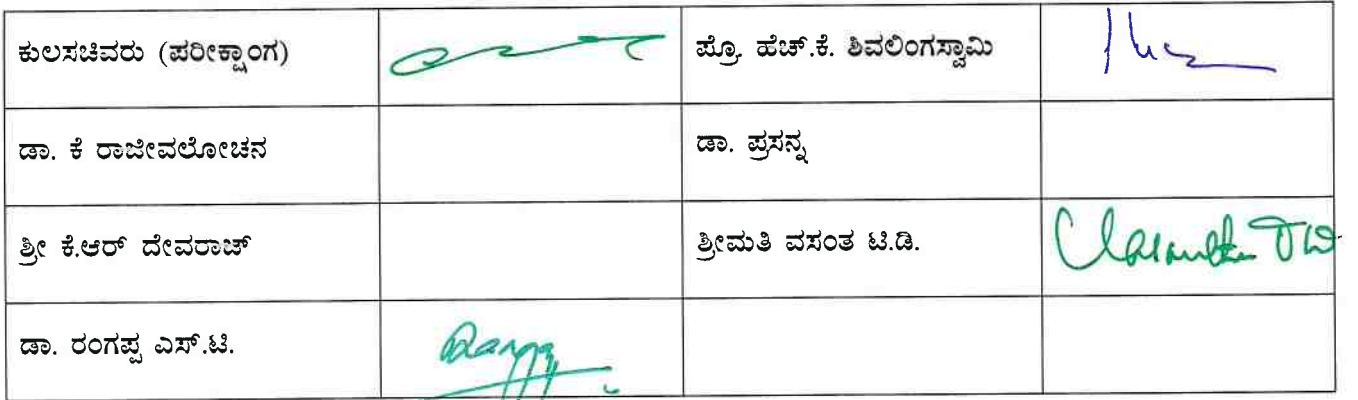 ಕುಲಸಚಿವರು (ಪರೀಕ್ಷಾಂಗ) ಪ್ರೊ. ಹೆಚ್.ಕೆ. ಶಿವಲಿಂಗಸ್ವಾಮಿ
ಡಾ. ಕೆ ರಾಜೀವಲೋಚನ ಡಾ. ಪ್ರಸನ್ನ
ಶ್ರೀ ಕೆ.ಆರ್ ದೇವರಾಜ್ ಶ್ರೀಮತಿ ವಸಂತ ಟಿ.ಡಿ.
ಡಾ. ರಂಗಪ್ಪ ಎಸ್.ಟಿ.